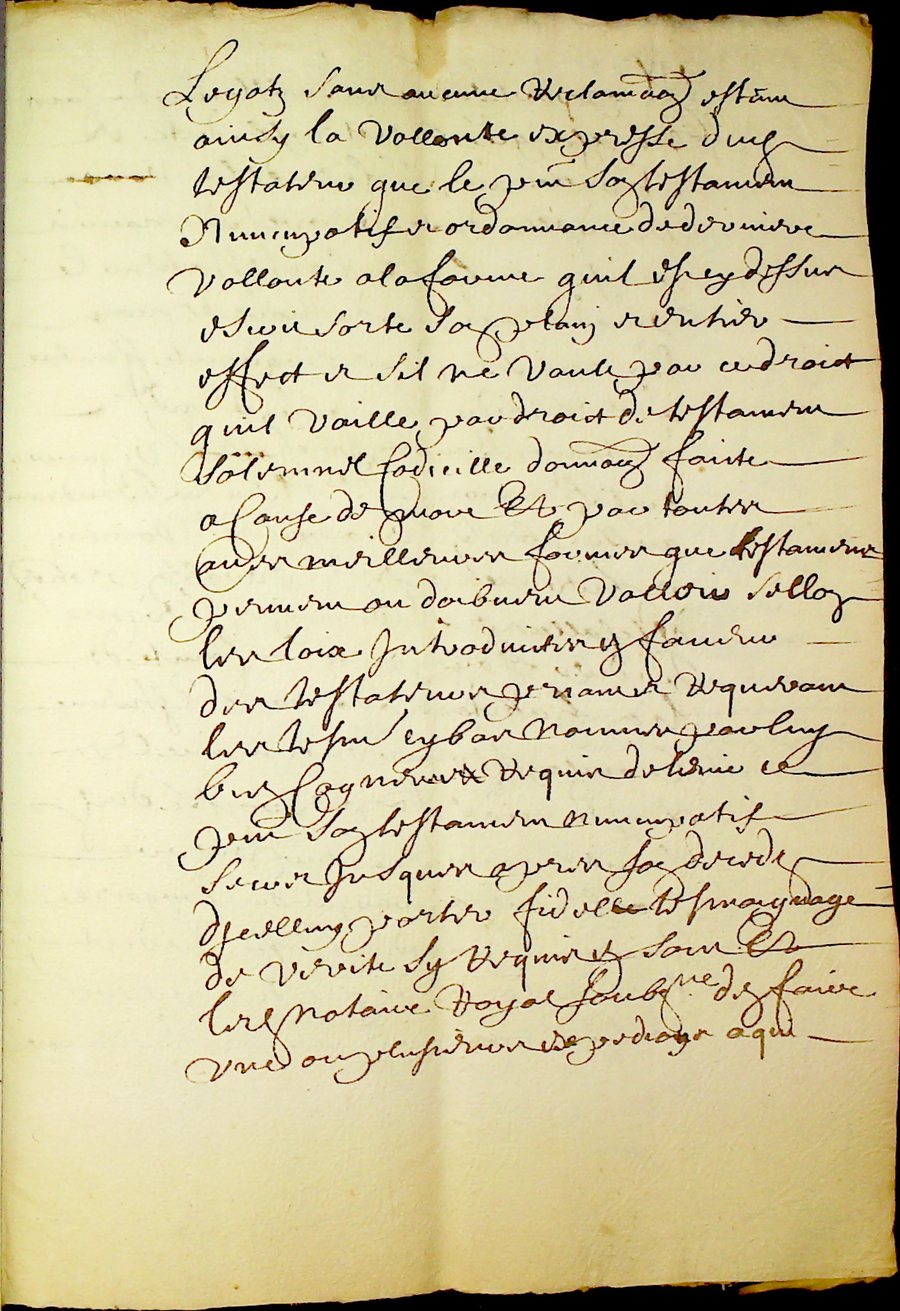 Legatz sans aucune reclamaon estant
ainsy la vollonte expresse dud
testateur que le pnt son testament
Nuncupatif et ordonnance de derniere
vollonte a la forme quil est cy dessus
escrit sorte son plain et entier
effect et sil ne vault par ce droict
quil vaille par droict de testament
solemnel Codicille donnaon faicte
a Cause de mort Et par toutes
autres meilleures formes que testament
peuvent ou doibvent valloir sellon
les loix Introduictes en faveur
des testateurs priant et requerant
les tesmt cy bas nommes par luy
bien Cognus et requis de tenir ce
pnt son testament nuncupatif
secret Jusques apres son deceds
dicelluy porter fidelle tesmoignage
de verite sy requis en sont Et
led Notaire Royal soubsne den faire
une ou plusieurs expedions a qui